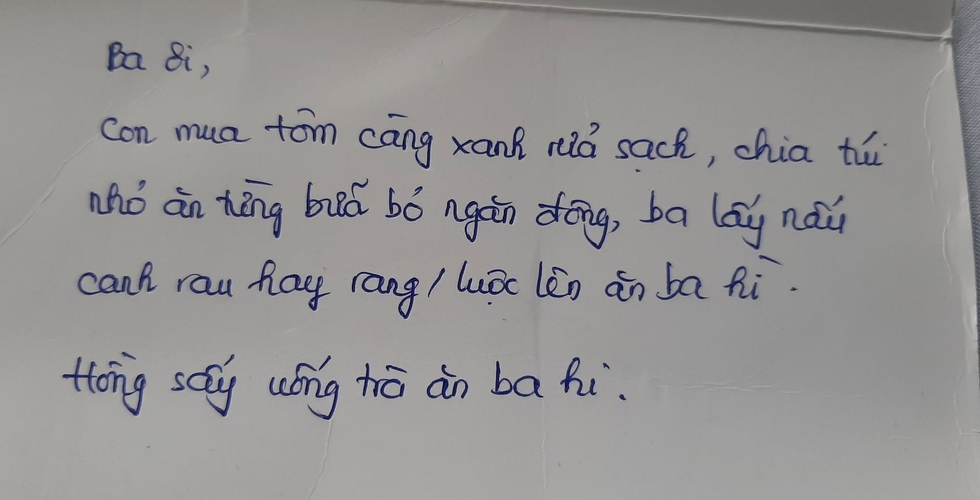 Ba ơi,
Con mua tôm càng xanh rửa sạch, chia túi
nhỏ ăn từng bữa bỏ ngăn đông, ba lấy nấu
canh rau hay rang/luộc lên ăn ba hỉ.
Hồng sấy uống trà ăn ba hỉ.